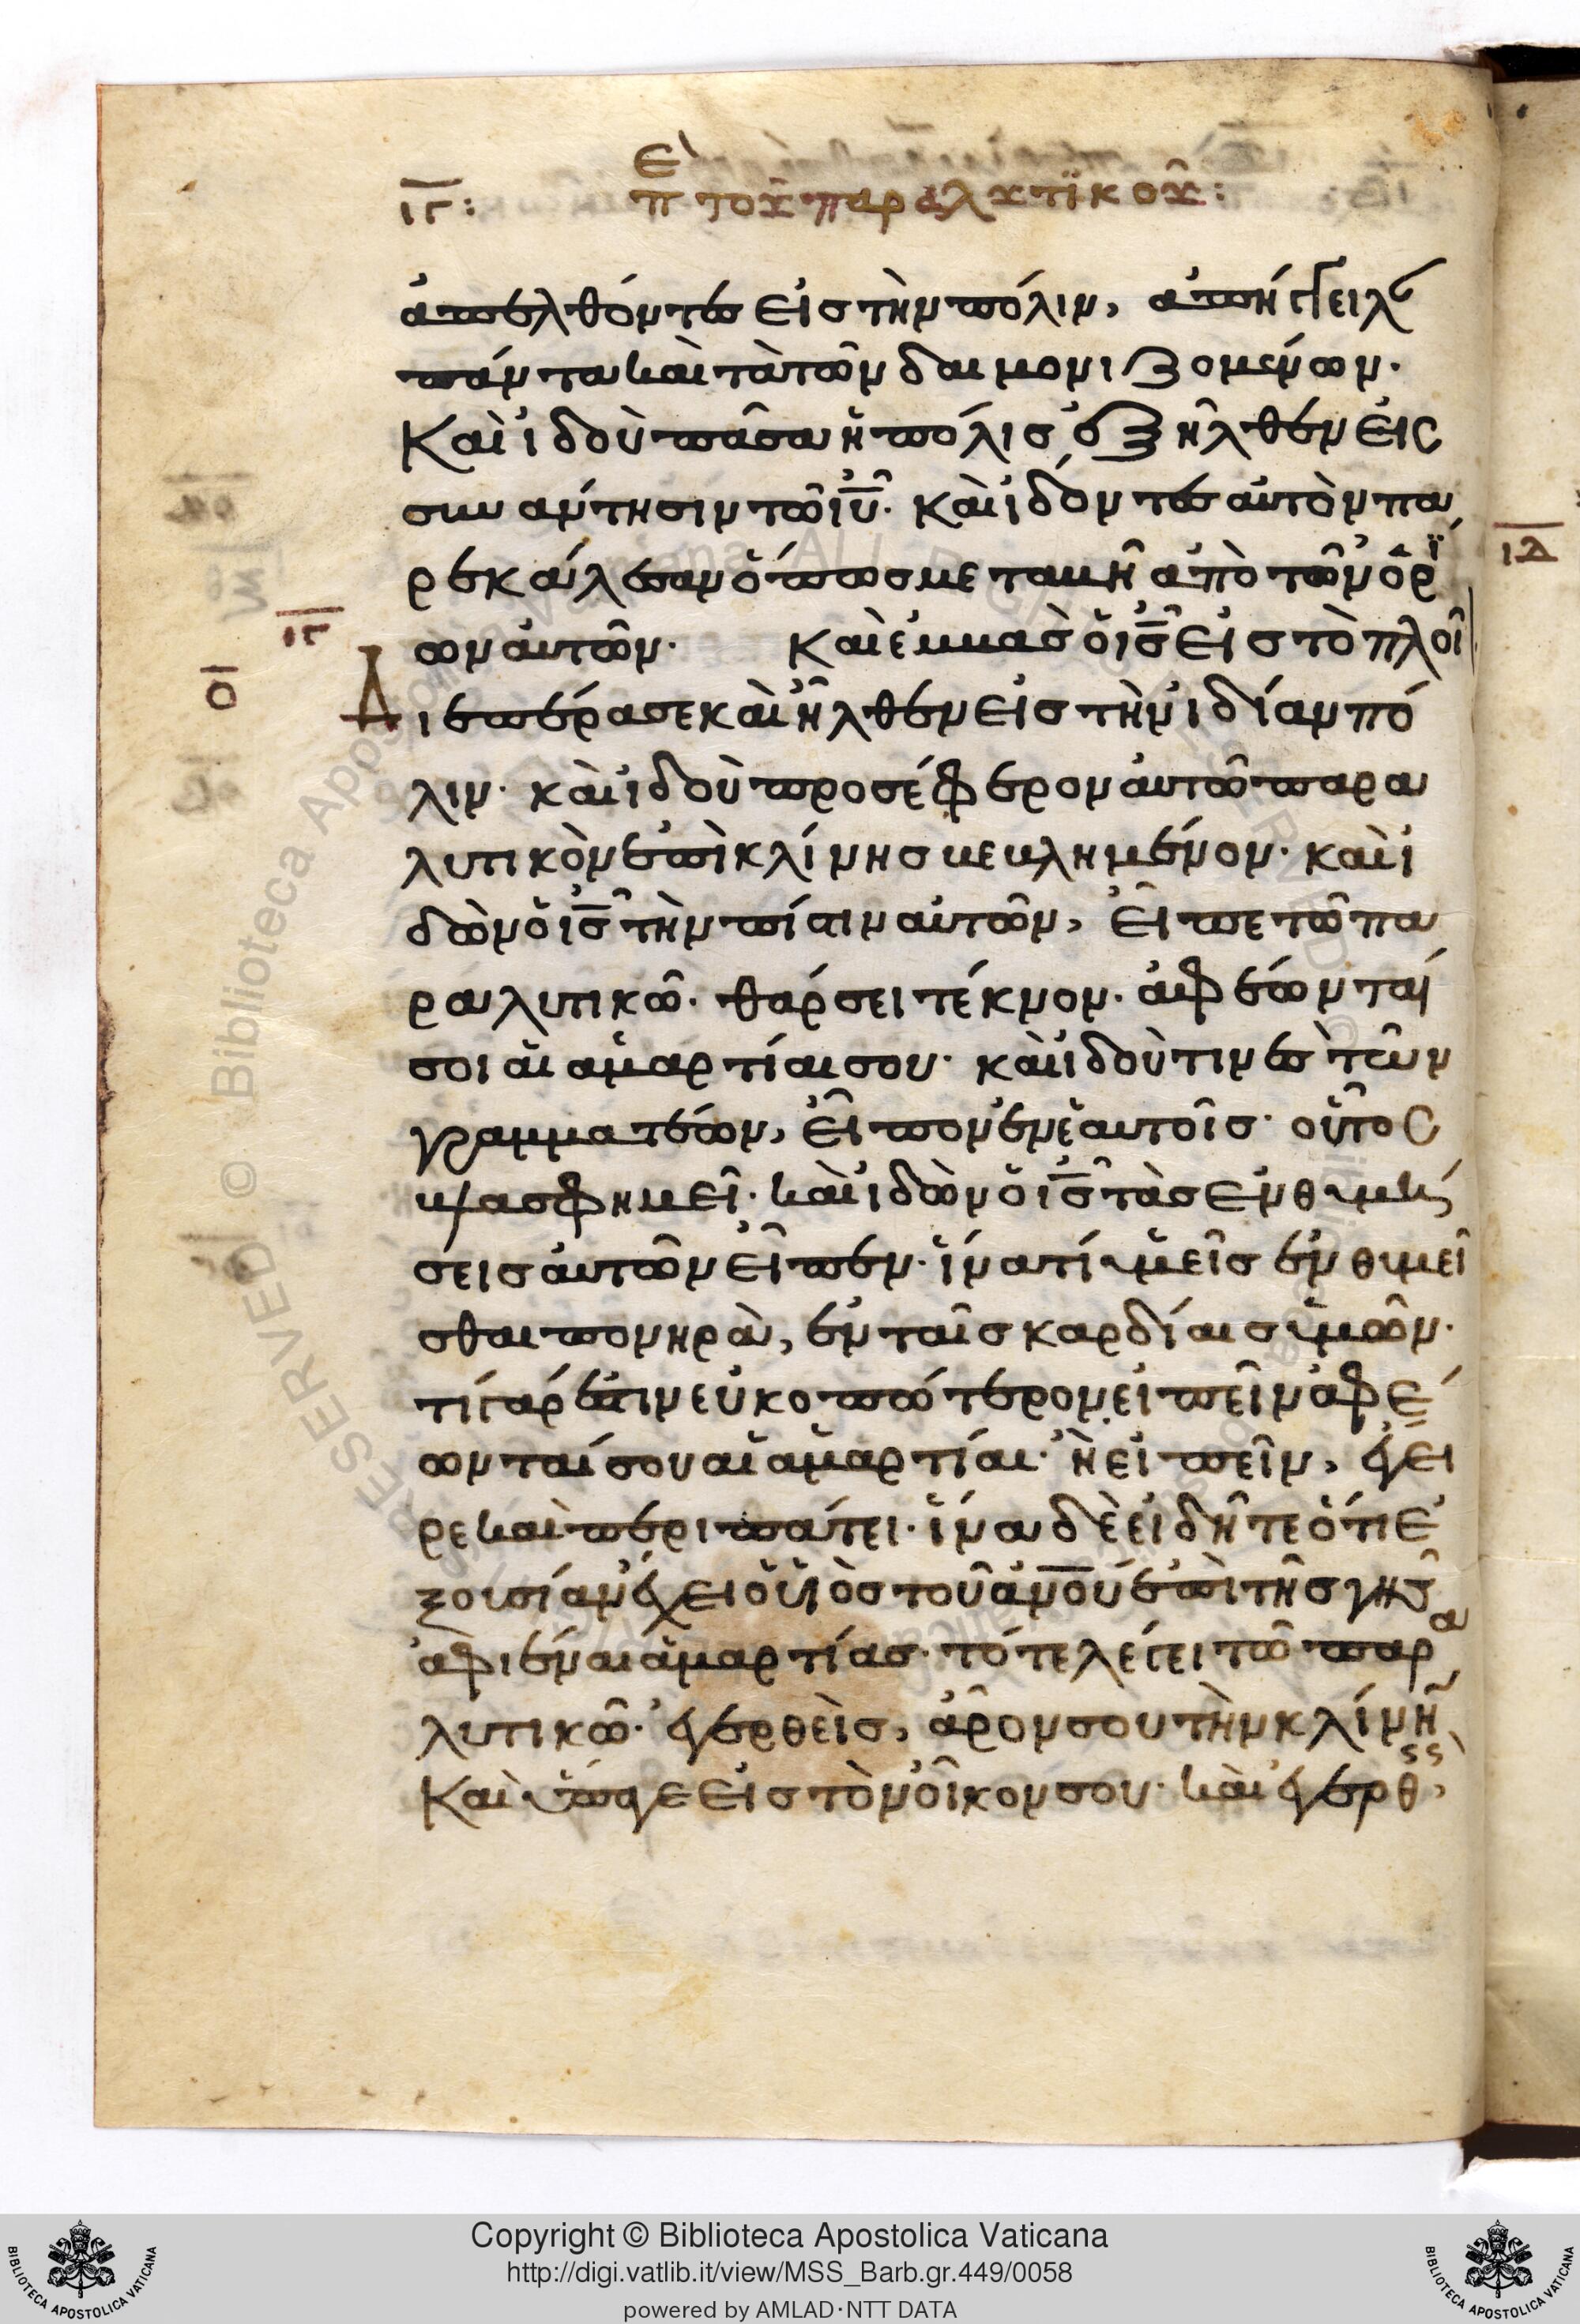 ιγ: πε τοῦ παραλυτϊκοῦ:
ἀπελθόντες εἰς τὴν πόλιν, ἀπήγγειλ
πάντα καὶ τὰ τῶν δαιμονιζομένων.
Καὶ ἰδοὺ πᾶσα ἡ πόλις ἐξῆλθεν εἰς
συνάντησιν τῶ ιῦ. καὶ ἰδόντες αὐτὸν πα
ρεκάλεσαν ὅπως μεταβῆ ἀπὸ τῶν ὁρΐ
ων αὐτῶν. Καὶ ἐμβὰς ὁ ις εἰς τὸ πλοῖ
ιγ
ι
Διεπέρασε καὶ ἦλθεν εἰς τὴν ἰδίαν πό
λιν. καὶ ἰδοὺ προσέφερον αὐτῶ παρα
λυτικὸν ἐπὶ κλίνης βεβλημένον. καὶ ἰ
δὼν ὁ ις τὴν πίστιν αὐτῶν, εἶπε τῶ πα
ραλυτικῶ. θάρσει τέκνον. ἀφέωνταί
σοι αἱ ἁμαρτίαι σου. καὶ ἰδού τινες τῶν
γραμματέων, εἶπον ἐν ἑαυτοῖς. οὗτος
βλασφημεῖ. καὶ ἰδὼν ὁ ις τὰς ἐνθυμή
σεις αὐτῶν εἶπεν. ἵνα τί ὑμεῖς ἐνθυμεῖ
σθαι πονηρὰ, ἐν ταῖς καρδίαις ὑμῶν.
τί γάρ ἐστιν εὐκοπώτερον εἰπεῖν ἀφέ
ωνταί σου αἱ ἁμαρτίαι. ἢ εἰπεῖν, ἔγει
ρε καὶ περιπάτει. ἵνα δὲ εἰδῆτε ὅτι ἐ
ξουσίαν ἔχει ὁ υἱὸς τοῦ ανου ἐπὶ τῆς γῆς
ἀφιέναι ἁμαρτίας. τότε λέγει τῶ παρα
λυτικῶ. ἐγερθεὶς, ἆρόν σου τὴν κλίνη
Καὶ ὕπαγε εἰς τὸν οἶκόν σου. καὶ ἐγερθ
ιδ
Copyright © Biblioteca Apostolica Vaticana
http://digi.vatlib.it/view/MSS_Barb.gr.449/0058
powered by AMLAD·NTT DATA
BIBLIOTECA APOSTOLICA VATICANA
BIBLIOTECA APOSTOLICA VATICANA